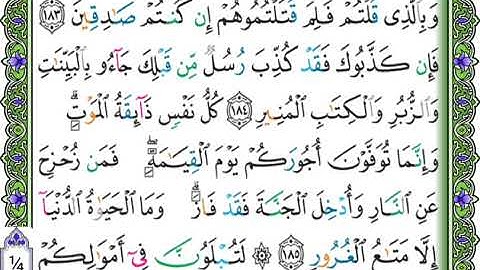 وَبِالَّذِي قُلْتُمْ فَلِمَ قَتَلْتُمُوهُمْ إِن كُنتُمْ صَادِقِينَ ﴿١٨٣﴾
فَإِن كَذَّبُوكَ فَقَدْ كُذِّبَ رُسُلٌ مِّن قَبْلِكَ جَآءُو بِالْبَيِّنَاتِ
وَالزُّبُرِ وَالْكِتَابِ الْمُنِيرِ ﴿١٨٤﴾ كُلُّ نَفْسٍ ذَآئِقَةُ الْمَوْتِ ۗ
وَإِنَّمَا تُوَفَّوْنَ أُجُورَكُمْ يَوْمَ الْقِيَامَةِ ۖ فَمَن زُحْزِحَ
عَنِ النَّارِ وَأُدْخِلَ الْجَنَّةَ فَقَدْ فَازَ ۗ وَمَا الْحَيَاةُ الدُّنْيَآ
إِلَّا مَتَاعُ الْغُرُورِ ﴿١٨٥﴾ ۞ لَتُبْلَوُنَّ فِيٓ أَمْوَالِكُمْ
1/4